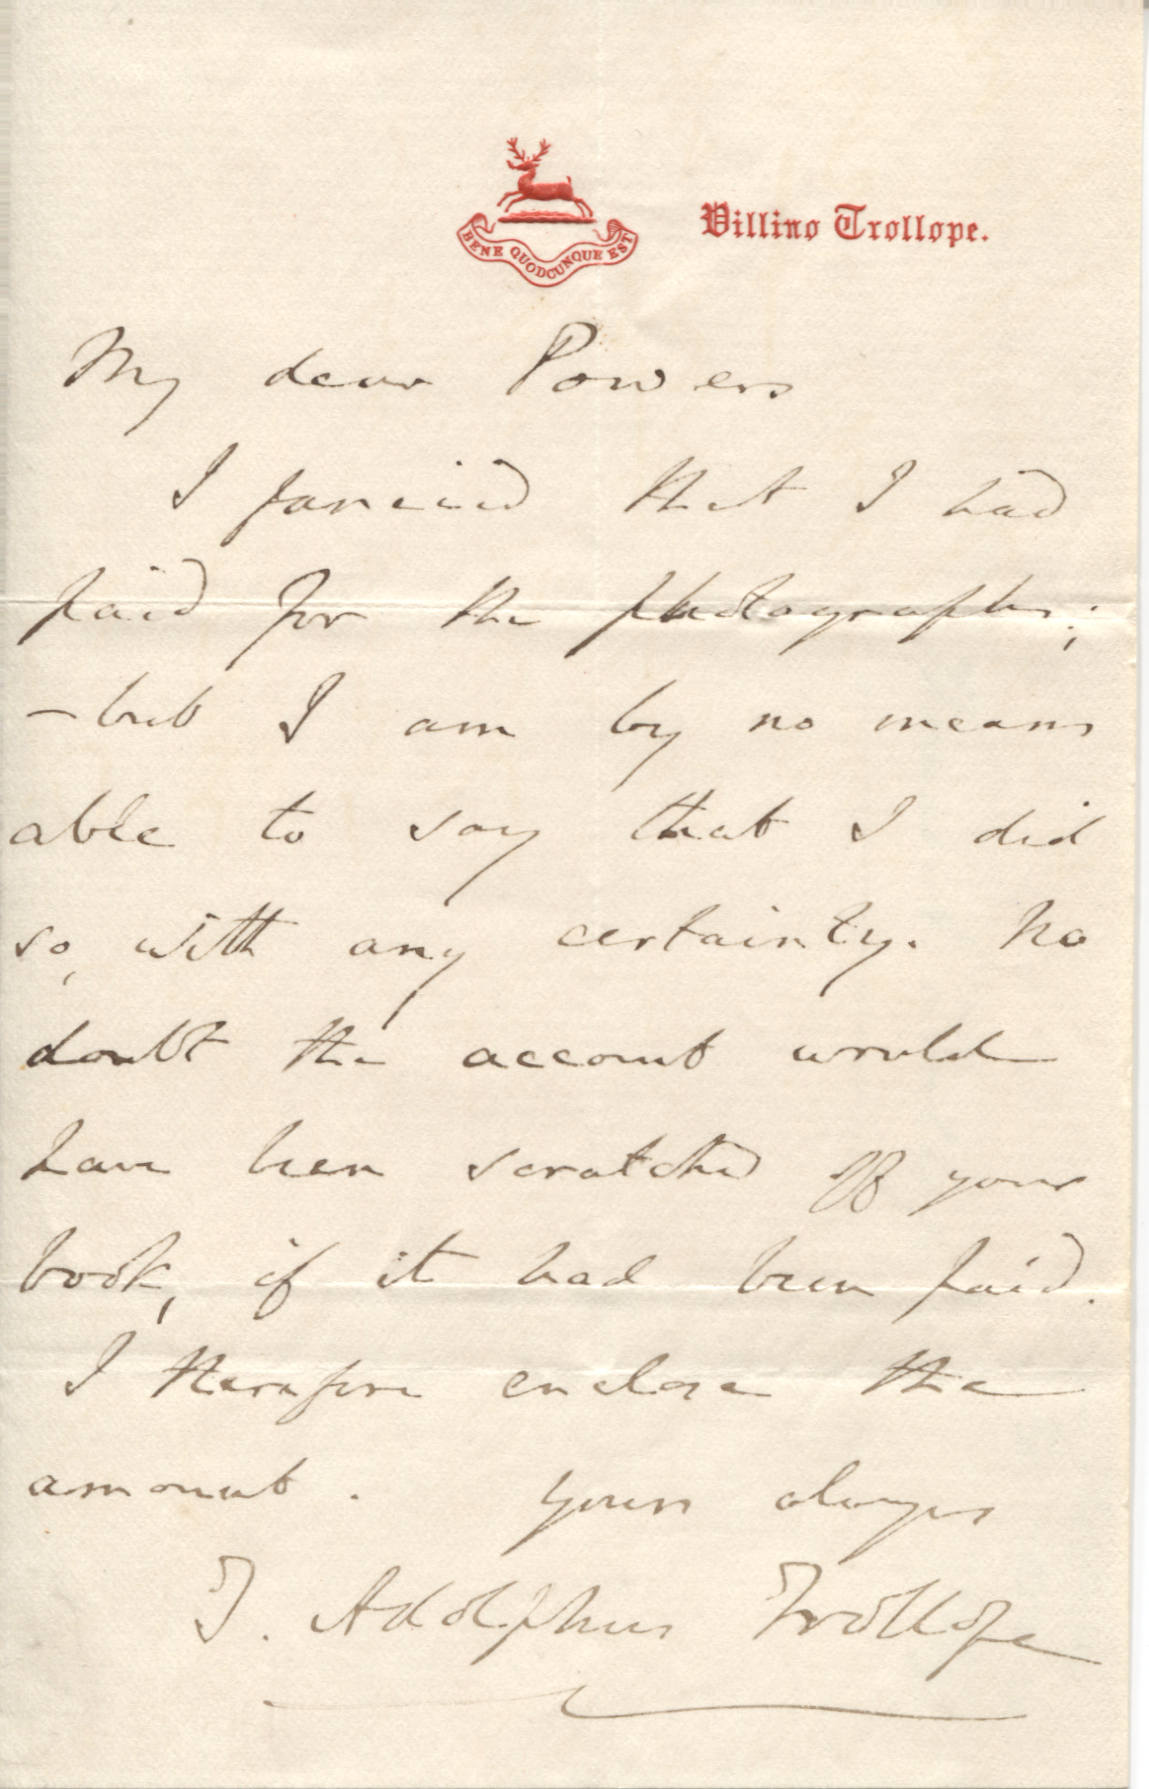 BENE QUODCUNQUE EST
Villino Trollope.
My dear Powers
I fancied that I had
paid for the photographs;
– but I am by no means
able to say that I did
so, with any certainty. No
doubt the account would
have been scratched off your
book, if it had been paid.
I therefore enclose the
amount. Yours always
T. Adolphus Trollope